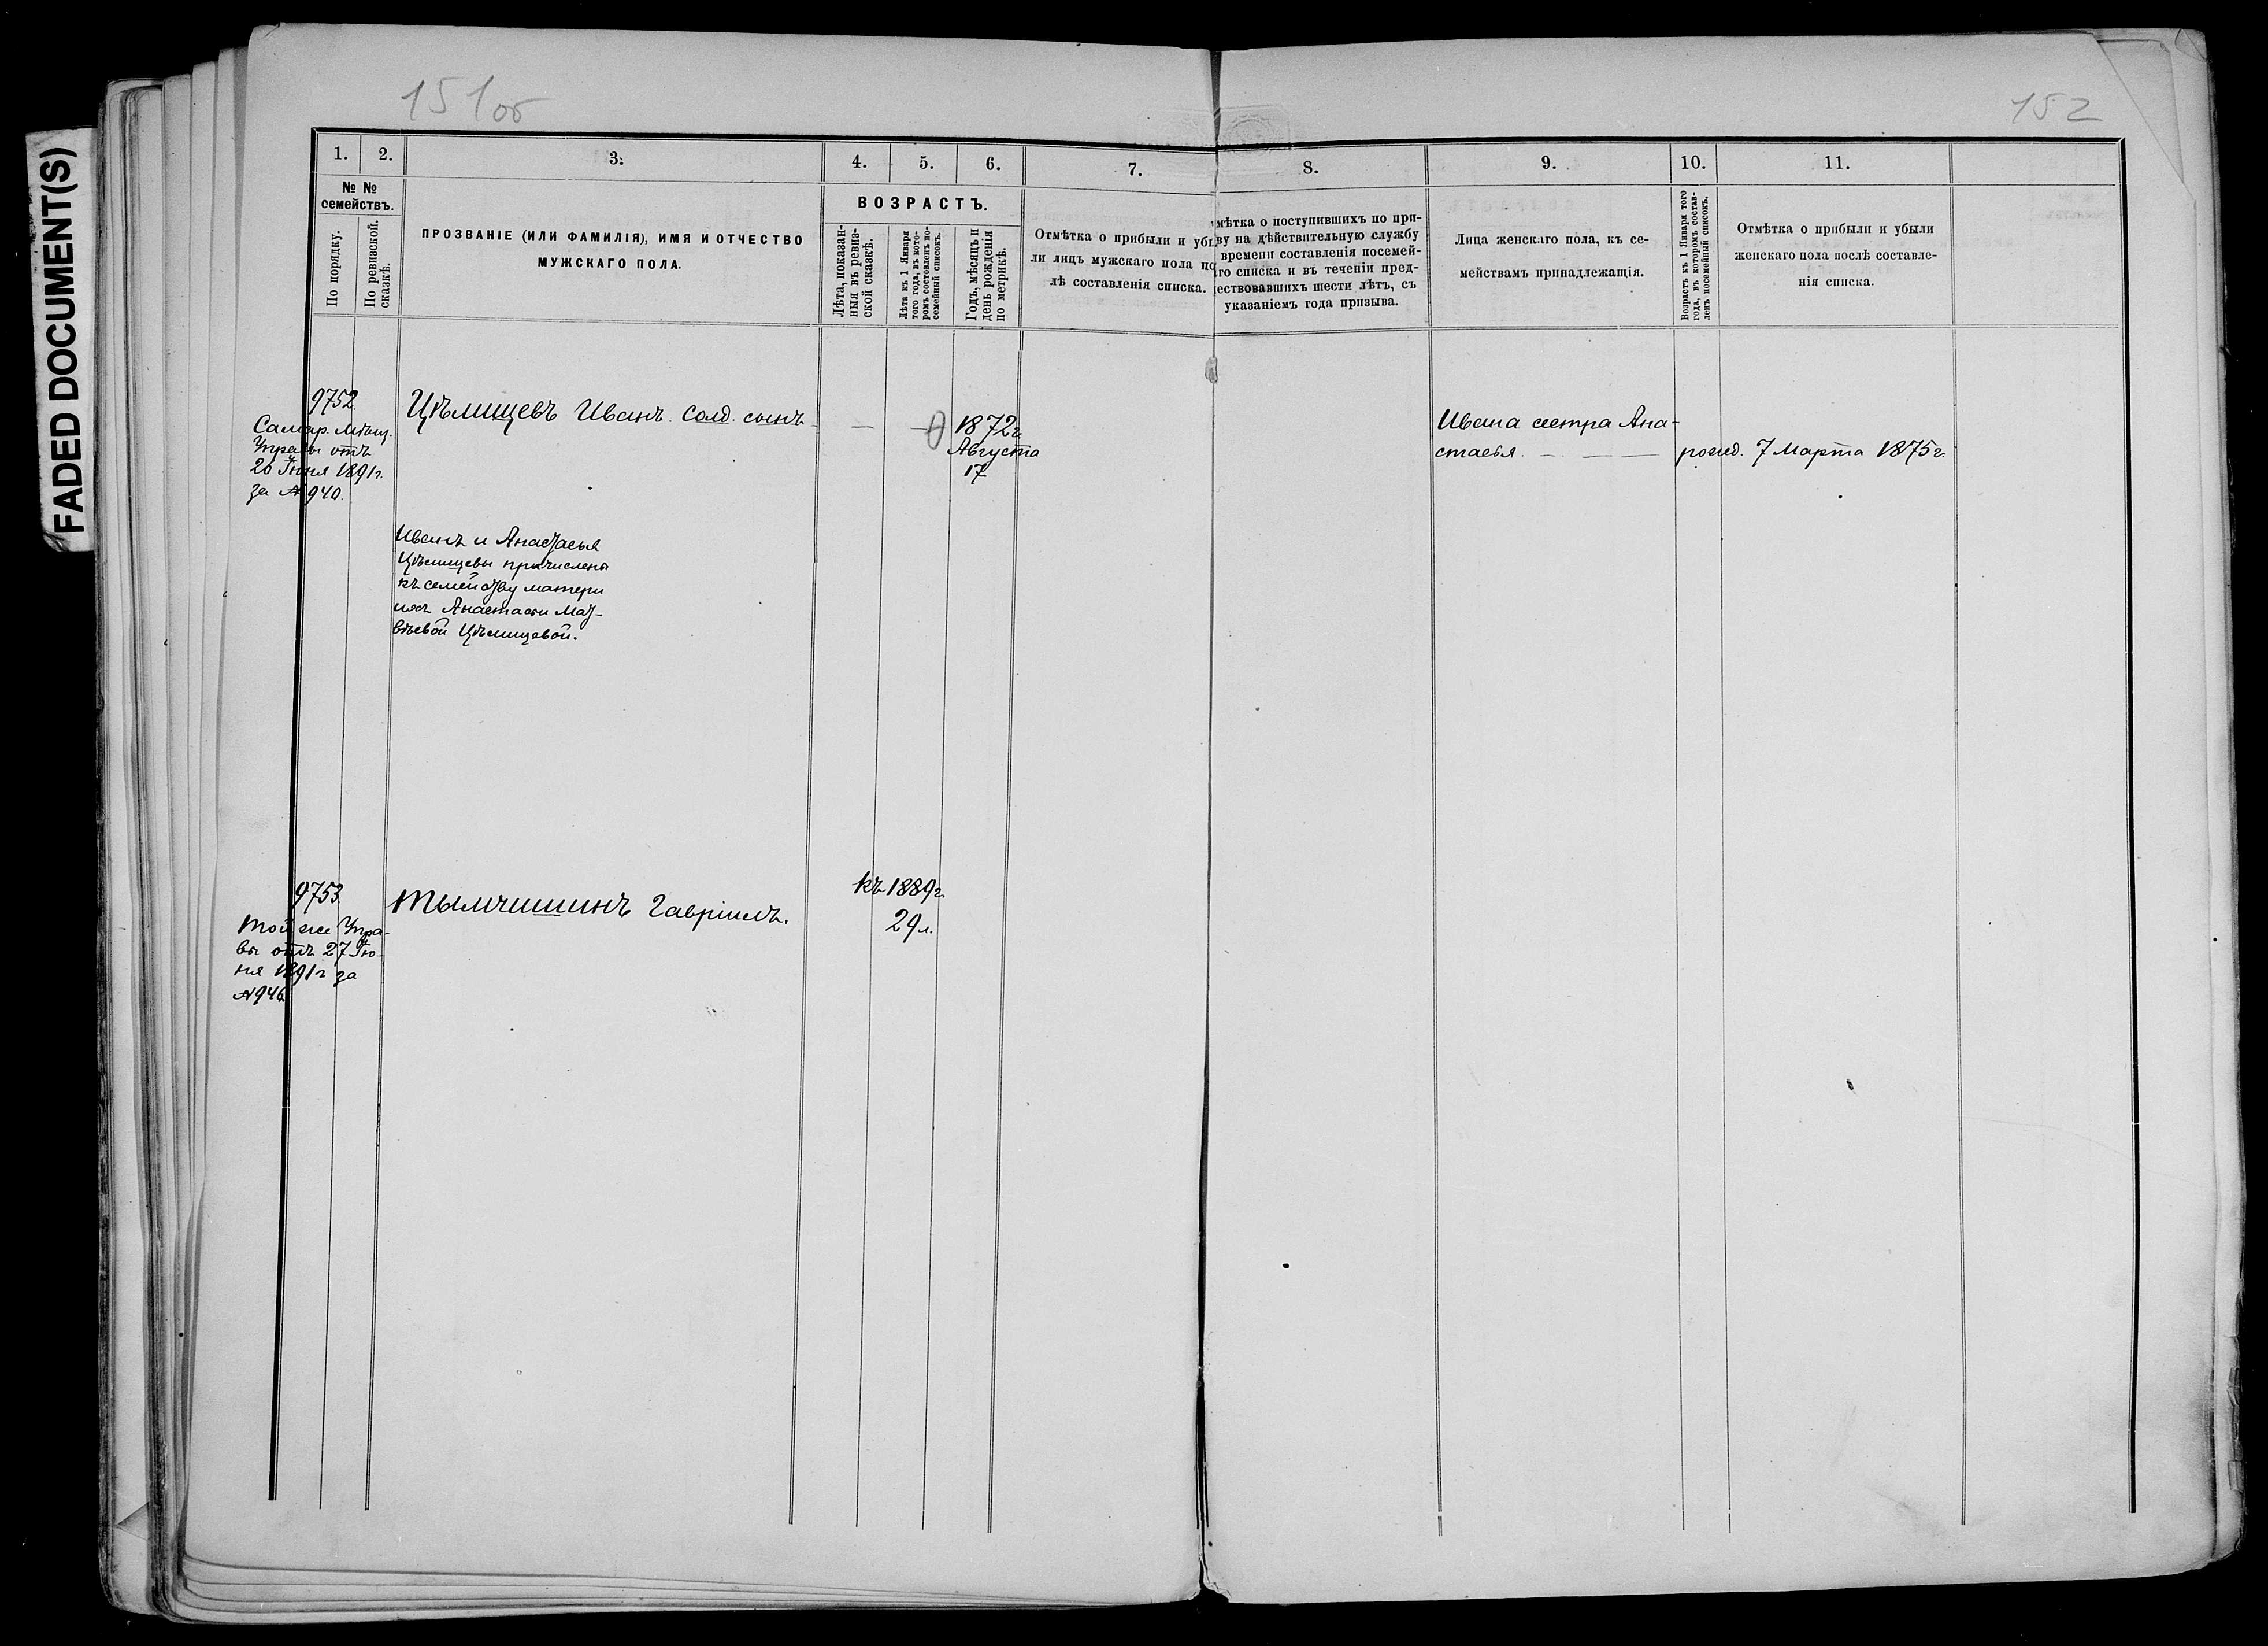 FADED DOCUMENT(S)
151об
152
1. 2. 3. 4. 5. 6. 7. 8. 9. 10. 11.
№ №
семействъ.
По порядку.
По ревизской
сказкѣ.
ПРОЗВАНІЕ (ИЛИ ФАМИЛІЯ), ИМЯ И ОТЧЕСТВО
МУЖСКАГО ПОЛА.
ВОЗРАСТЪ.
Лѣта, показан-
ныя въ ревиз-
ской сказкѣ.
Лѣта къ 1 Января
того года, въ кото-
ромъ составленъ по-
семейный списокъ.
Годъ, мѣсяцъ и
день рожденія
по метрикѣ.
Отмѣтка о прибыли и убы
ли лицъ мужскаго пола по
лѣ составленія списка.
мѣтка о поступившихъ по при-
ву на дѣйствительную службу
времени составленія посемей-
го списка и въ теченіи пред-
ествовавшихъ шести лѣтъ, съ
указаніемъ года призыва.
Лица женскаго пола, къ се-
мействамъ принадлежащія.
Возрастъ къ 1 Января того
года, въ которомъ состав-
ленъ посемейный списокъ.
Отмѣтка о прибыли и убыли
женскаго пола послѣ составле-
нія списка.
9752
Самар. Мѣщ.
Управы отъ
26 Іюня 1891г.
за № 940.
Цѣлищевъ Иванъ. Солд. сынъ
1872г.
Августа
17
Ивана сестра Ана-
стасья. рожд. 7 Марта 1875г.
Иванъ и Анастасья
Цѣлищевы причислены
къ семейству матери
ихъ Анастасіи Мат-
вѣевой Цѣлищевой.
9753.
Той же Упра-
вы отъ 27 Ію-
ня 1891г за
№946.
Тымчишинъ Гавріилъ.
къ 1889г.
29л.